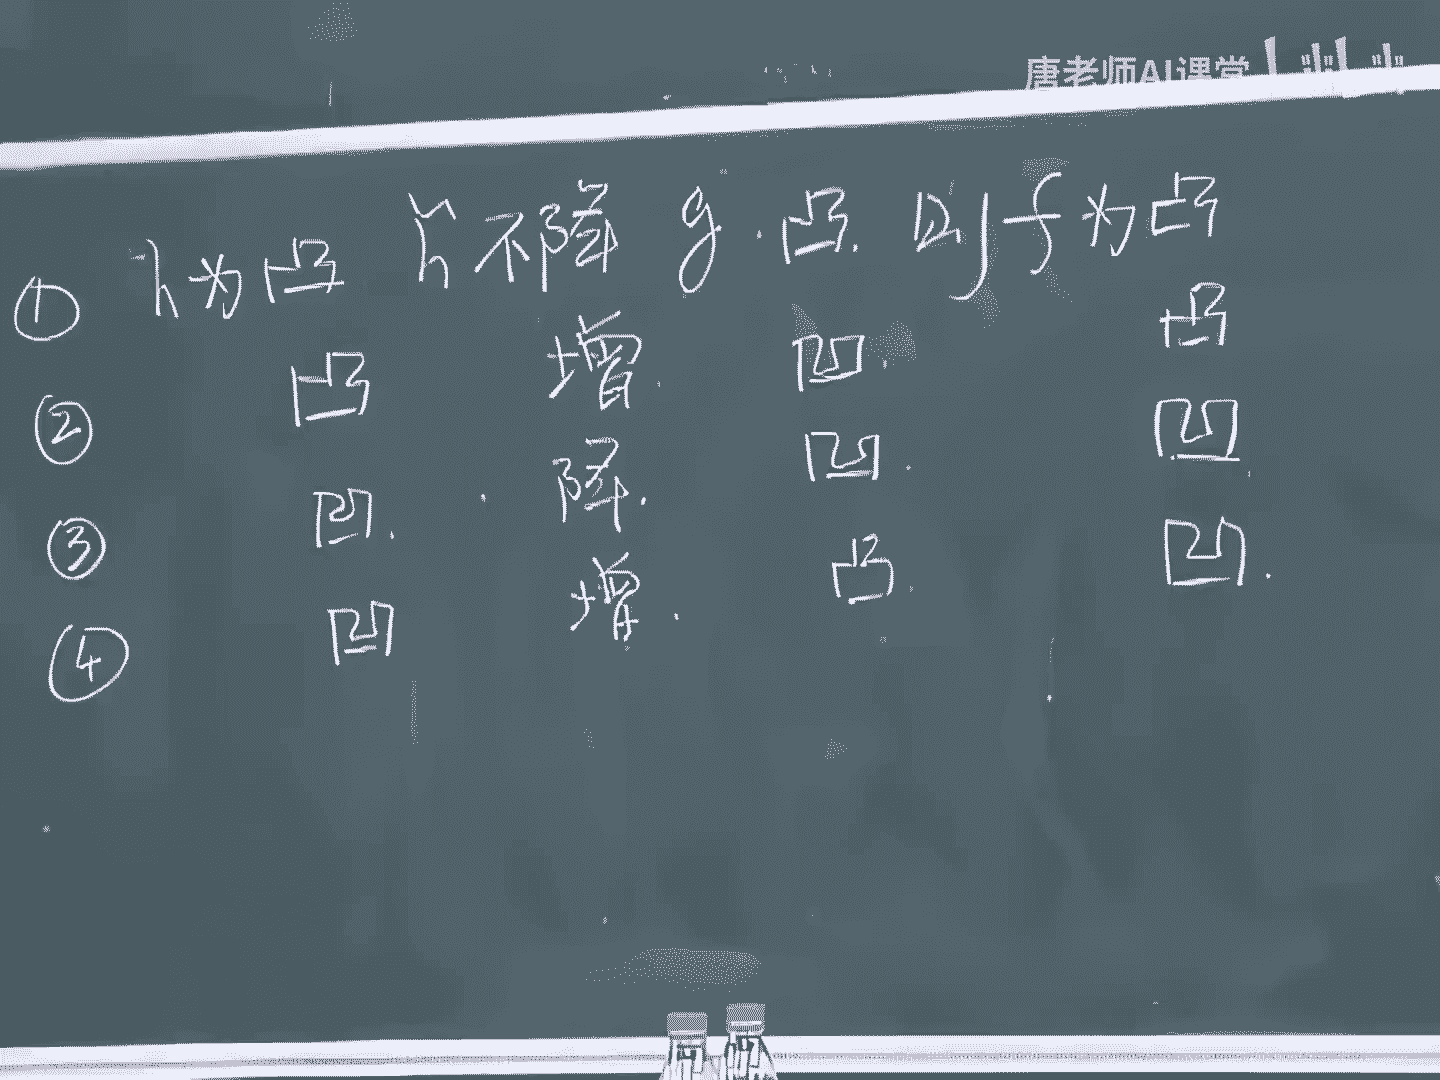 唐老师AI课堂
① h为凸 h̃不降 g.凸. 则f为凸
② 凸 增. 凹. 凸
③ 凹. 降. 凹. 凹
④ 凹 增. 凸. 凹.